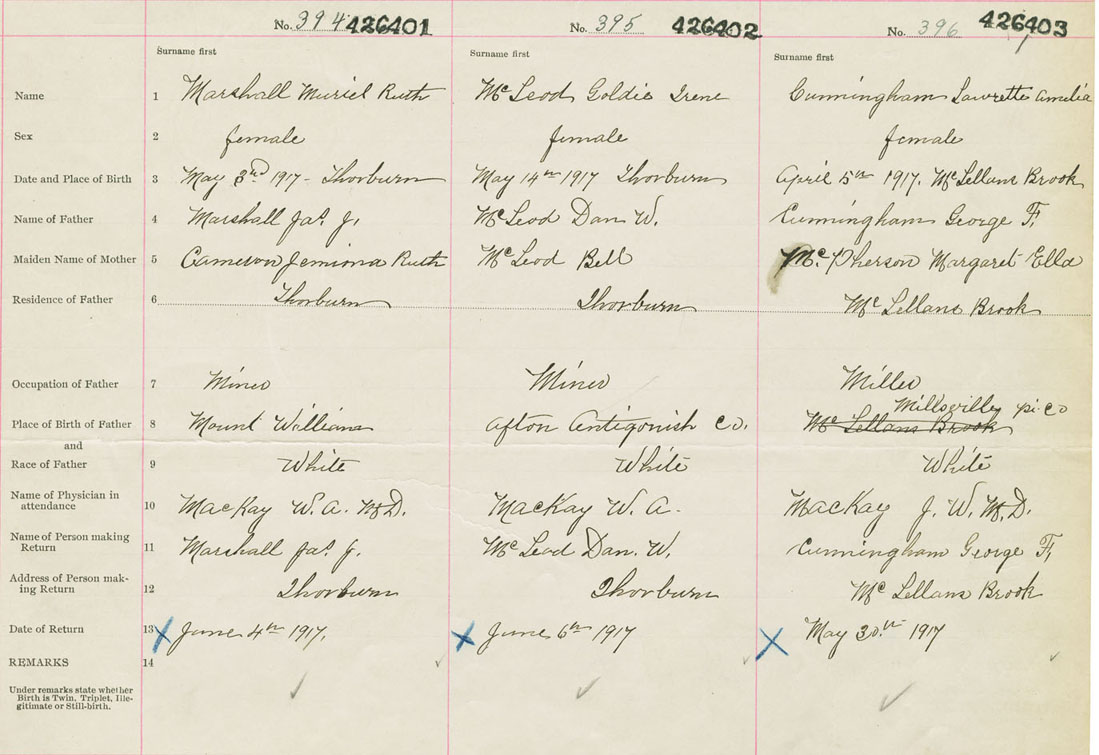 No. 394 426401 No. 395 426402 No. 396 426403
Surname first Surname first Surname first
Name 1 Marshall Muriel Ruth McLeod Goldie Irene Cunningham Lawrette Amelia
Sex 2 female female female
Date and Place of Birth 3 May 3rd 1917 - Thorburn May 14th 1917 Thorburn April 5th 1917. McLellans Brook
Name of Father 4 Marshall Jas. J. McLeod Dan W. Cunningham George F.
Maiden Name of Mother 5 Cameron Jemima Ruth McLeod Bell McPherson Margaret Ella
Residence of Father 6 Thorburn Thorburn McLellans Brook
Occupation of Father 7 Miner Miner Miller
Millsville pi. co
Place of Birth of Father 8 Mount William Afton Antigonish Co. McLellans Brook
and
Race of Father 9 White White White
Name of Physician in
attendance 10 MacKay W. A. M.D. MacKay W. A. MacKay J. W. M.D.
Name of Person making
Return 11 Marshall Jas. J. McLeod Dan. W. Cunningham George F.
Address of Person mak-
ing Return 12 Thorburn Thorburn McLellans Brook
Date of Return 13 X June 4th 1917. X June 6th 1917 X May 30th 1917
REMARKS 14
Under remarks state whether
Birth is Twin, Triplet, Ille-
gitimate or Still-birth.